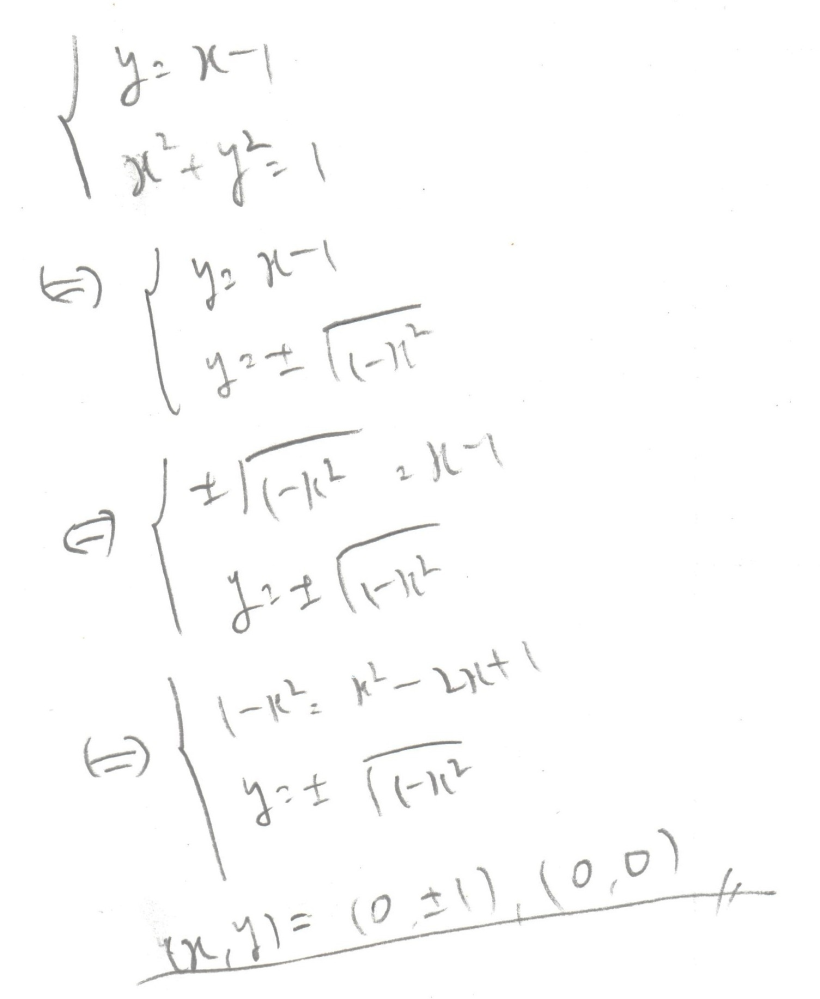 { y = x-1
x² + y² = 1
⇔ { y = x-1
y = ± √(1-x²)
⇔ { ± √(1-x²) = x-1
y = ± √(1-x²)
⇔ { 1-x² = x² - 2x + 1
y = ± √(1-x²)
(x, y) = (0, ±1), (0, 0) //